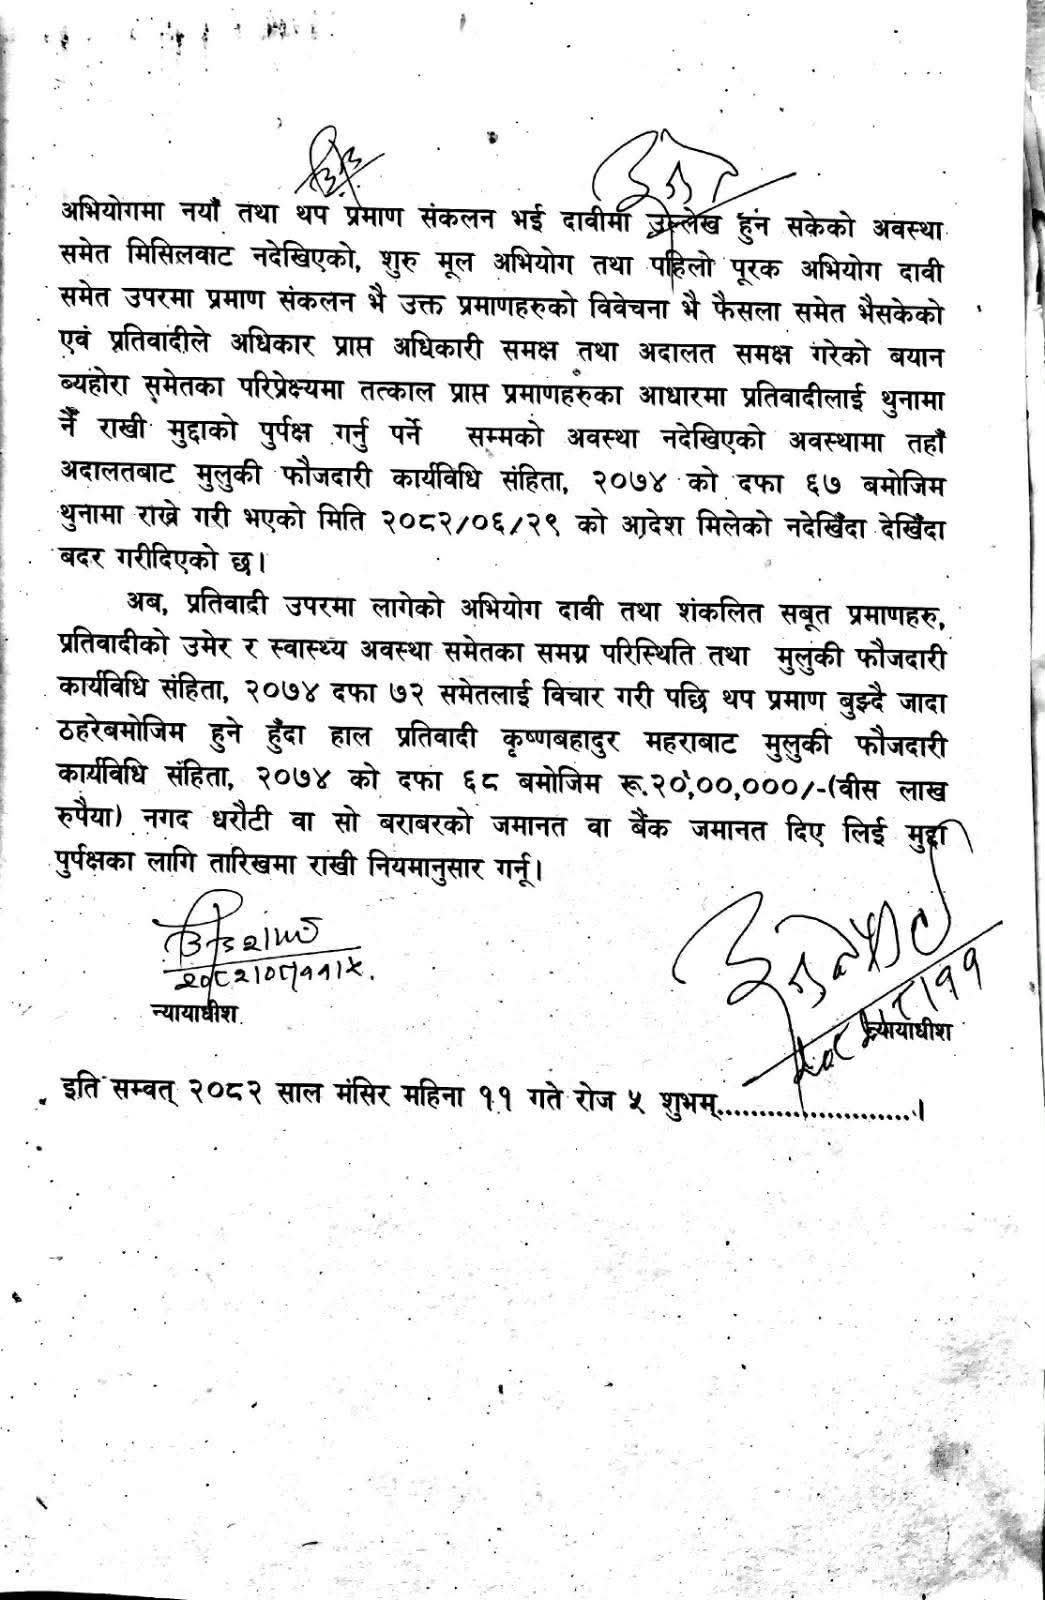 अभियोगमा नयाँ तथा थप प्रमाण संकलन भई दावीमा उल्लेख हुन सकेको अवस्था
समेत मिसिलवाट नदेखिएको, शुरु मूल अभियोग तथा पहिलो पूरक अभियोग दावी
समेत उपरमा प्रमाण संकलन भै उक्त प्रमाणहरुको विवेचना भै फैसला समेत भैसकेको
एवं प्रतिवादीले अधिकार प्राप्त अधिकारी समक्ष तथा अदालत समक्ष गरेको बयान
ब्यहोरा समेतका परिप्रेक्ष्यमा तत्काल प्राप्त प्रमाणहरुका आधारमा प्रतिवादीलाई थुनामा
नैँ राखी मुद्दाको पुर्पक्ष गर्नु पर्ने सम्मको अवस्था नदेखिएको अवस्थामा तहाँ
अदालतबाट मुलुकी फौजदारी कार्यविधि संहिता, २०७४ को दफा ६७ बमोजिम
थुनामा राख्ने गरी भएको मिति २०८२/०६/२९ को आदेश मिलेको नदेखिँदा देखिँदा
बदर गरीदिएको छ।
अब, प्रतिवादी उपरमा लागेको अभियोग दावी तथा शंकलित सबूत प्रमाणहरु,
प्रतिवादीको उमेर र स्वास्थ्य अवस्था समेतका समग्र परिस्थिति तथा मुलुकी फौजदारी
कार्यविधि संहिता, २०७४ दफा ७२ समेतलाई विचार गरी पछि थप प्रमाण बुझ्दै जादा
ठहरेबमोजिम हुने हुँदा हाल प्रतिवादी कृष्णबहादुर महराबाट मुलुकी फौजदारी
कार्यविधि संहिता, २०७४ को दफा ६८ बमोजिम रू.२०,००,०००/-(वीस लाख
रुपैया) नगद धरौटी वा सो बराबरको जमानत वा बैंक जमानत दिए लिई मुद्दा
पुर्पक्षका लागि तारिखमा राखी नियमानुसार गर्नू।
२०८२।०८।११।५.
न्यायाधीश
न्यायाधीश
इति सम्वत् २०८२ साल मंसिर महिना ११ गते रोज ५ शुभम्.........................।